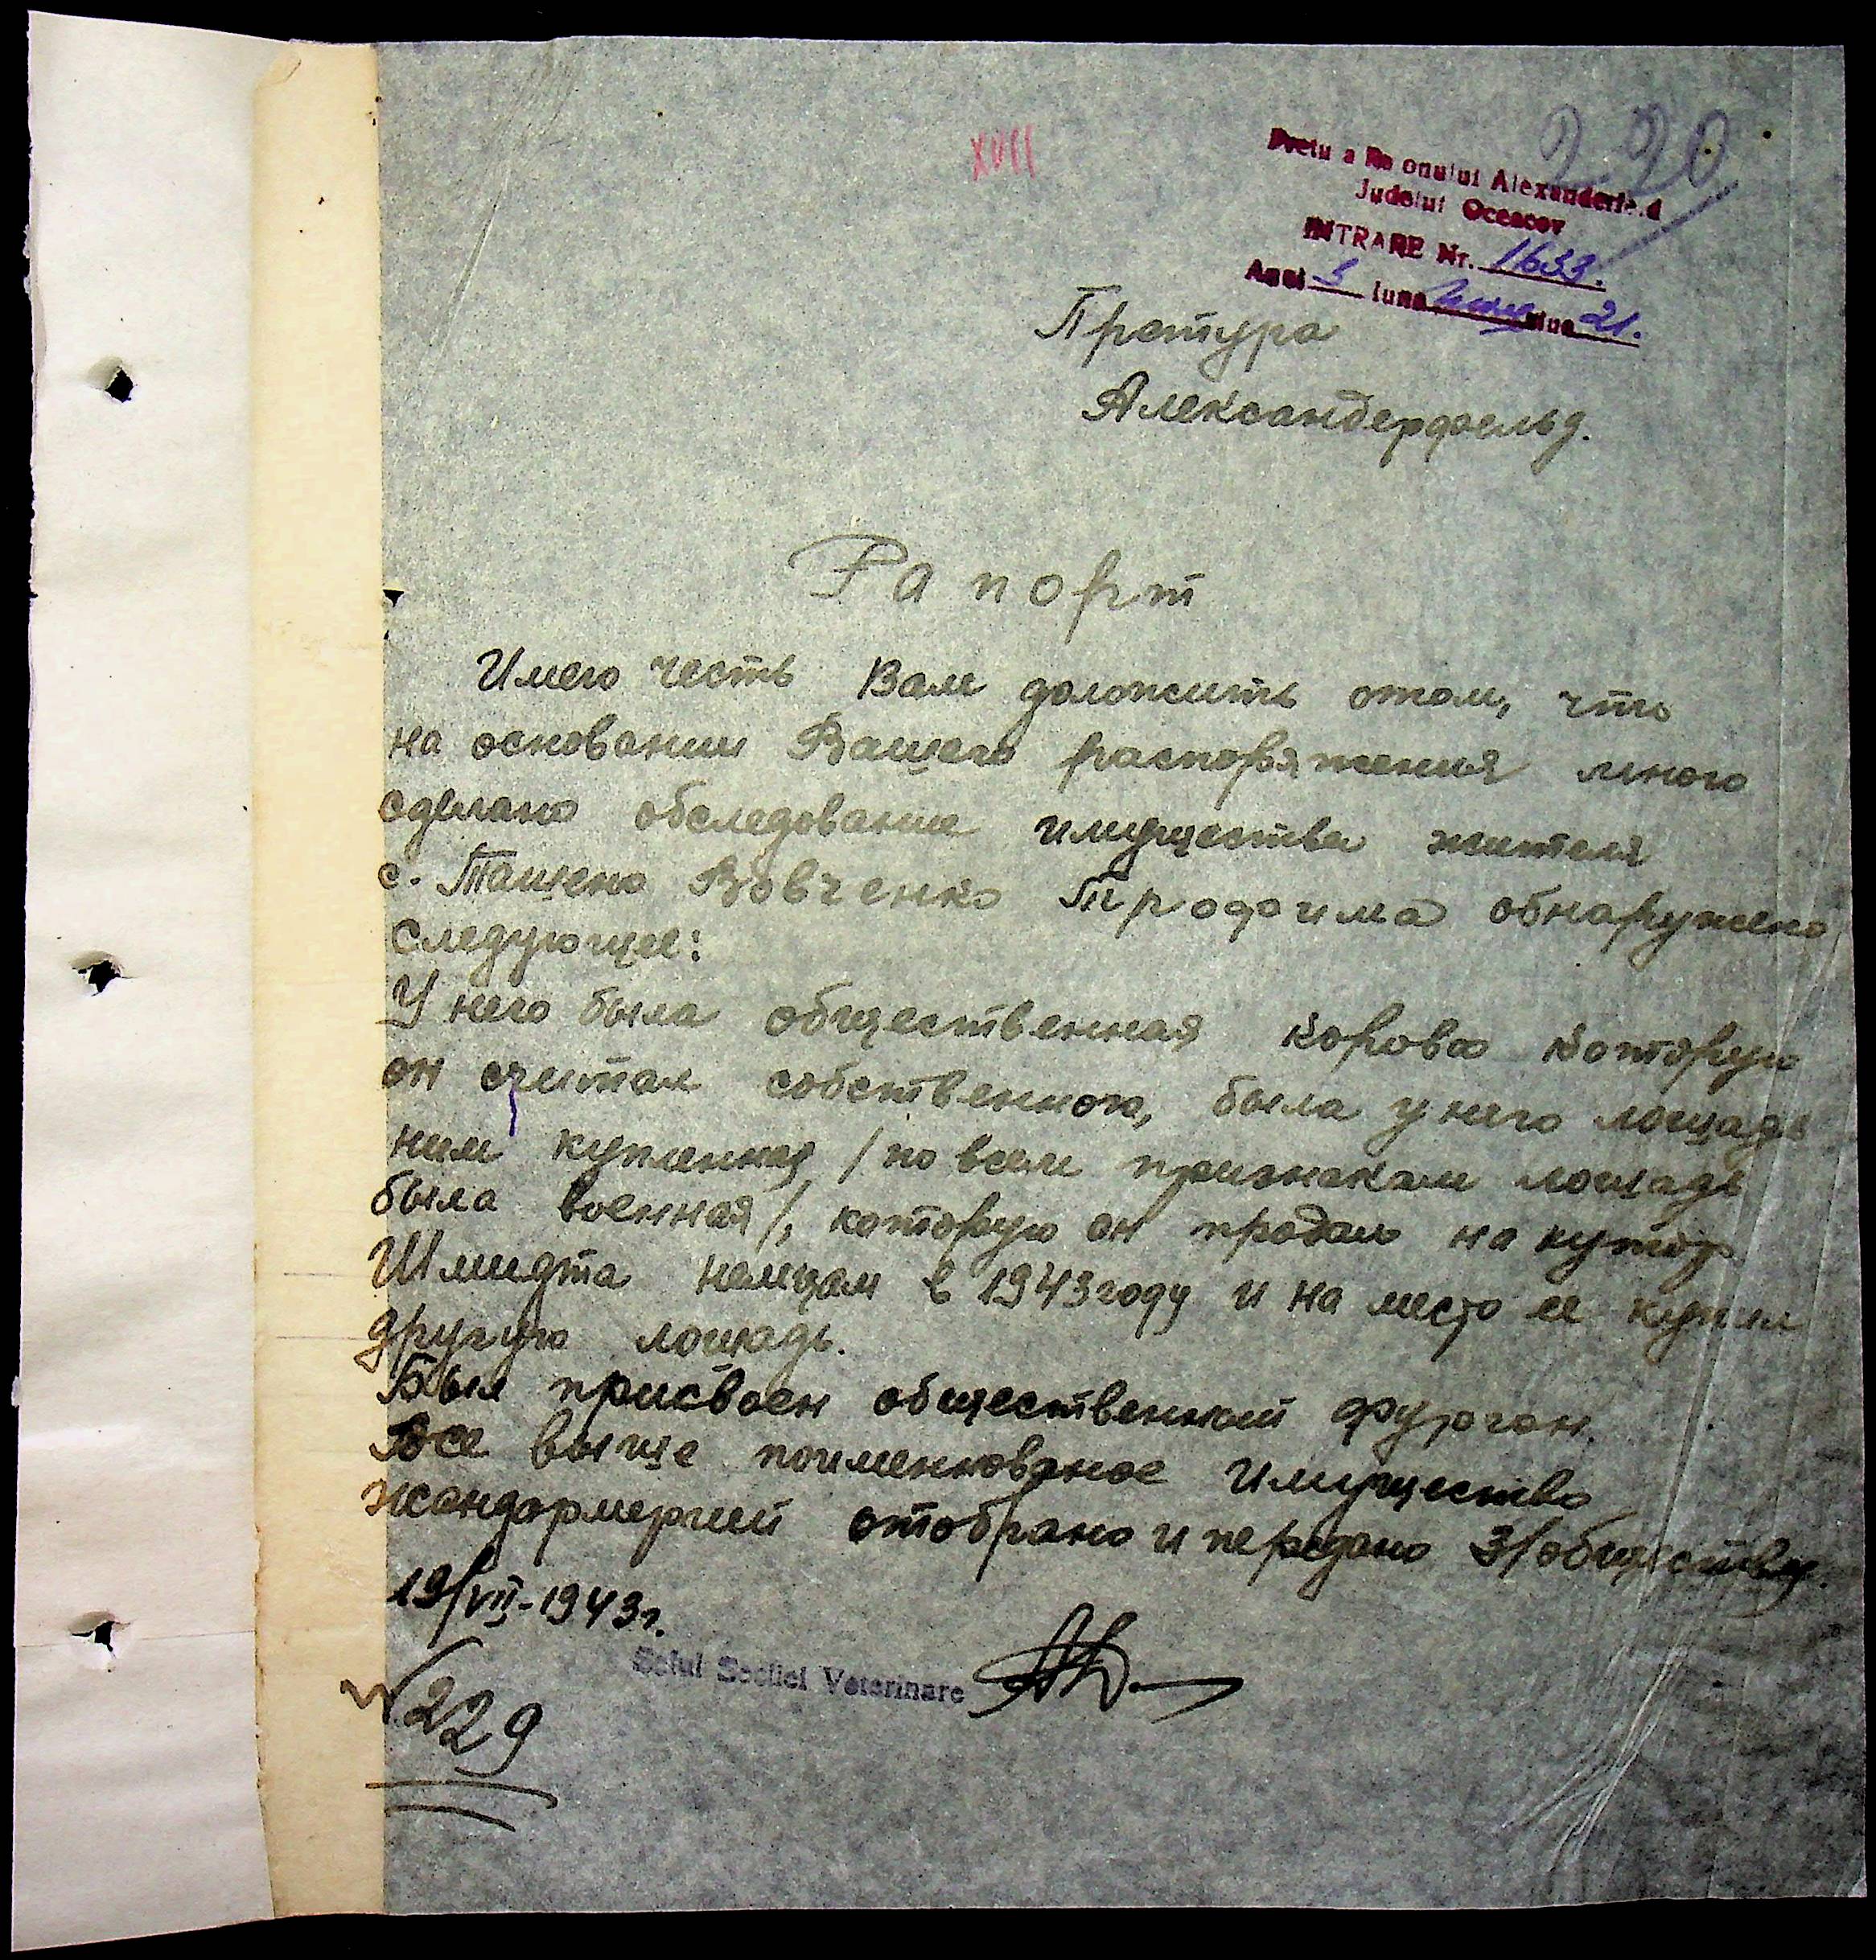 XVII
220
Pretu a Ra onului Alexanderfe.d
Judetul Oceacov
INTRARE Nr. 1633.
Anul 3 luna ziua 21.
Претура
Александерфельд.
Рапорт
Имею честь Вам доложить отом, что
на основании Вашего распоряжения мною
сделано обследование имущества жителя
с. Ташено Вовченко Трофима обнаружено
следующее:
У него была общественная корова которую
он считал собственною, была у него лошадь
ним купленная /по всем признакам лошадь
была военная/, которую он продал на хутор
Шмидта немцам в 1943 году и на место ее купил
другую лошадь.
Был присвоен общественный фургон.
Все выше поименованое имущество
жандармерией отобрано и передано З/обществу.
19/VII-1943г.
Seful Sectiei Veterinare
229